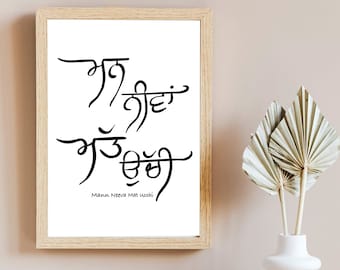 ਮਨ
ਨੀਵਾਂ
ਮੱਤ
ਉੱਚੀ
Mann Neeva Mat Uchi